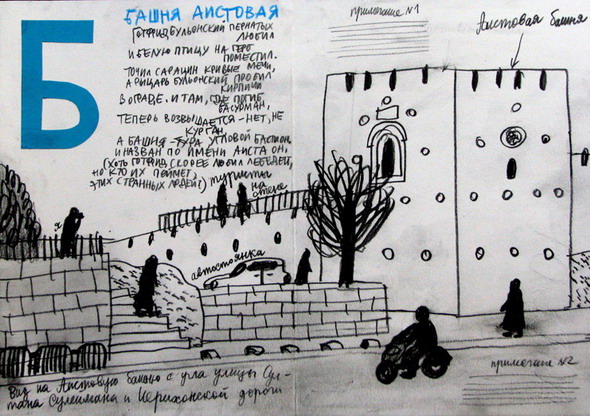 Б
БАШНЯ АИСТОВАЯ
ГОТФРИД БУЛЬОНСКИЙ ПЕРНАТЫХ
ЛЮБИЛ
И БЕЛУЮ ПТИЦУ НА ГЕРБ
ПОМЕСТИЛ.
ТОЧИЛ САРАЦИН КРИВЫЕ МЕЧИ,
А РЫЦАРЬ БУЛЬОНСКИЙ ПРОБИЛ
КИРПИЧИ
В ОГРАДЕ. И ТАМ, ГДЕ ПОГИБ
БАСУРМАН,
ТЕПЕРЬ ВОЗВЫШАЕТСЯ – НЕТ, НЕ
КУРГАН
А БАШНЯ – ТУРА, УГЛОВОЙ БАСТИОН,
И НАЗВАН ПО ИМЕНИ АИСТА ОН,
(ХОТЬ ГОТФРИД СКОРЕЕ ЛЮБИЛ ЛЕБЕДЕЙ,
НО КТО ИХ ПОЙМЕТ,
ЭТИХ СТРАННЫХ ЛЮДЕЙ?)
примечание №1
Аистовая башня
туристы
на
стене
я
автостоянка
примечание №2
Вид на Аистовую башню с угла улицы Сул-
тана Сулеймана и Иерихонской дороги